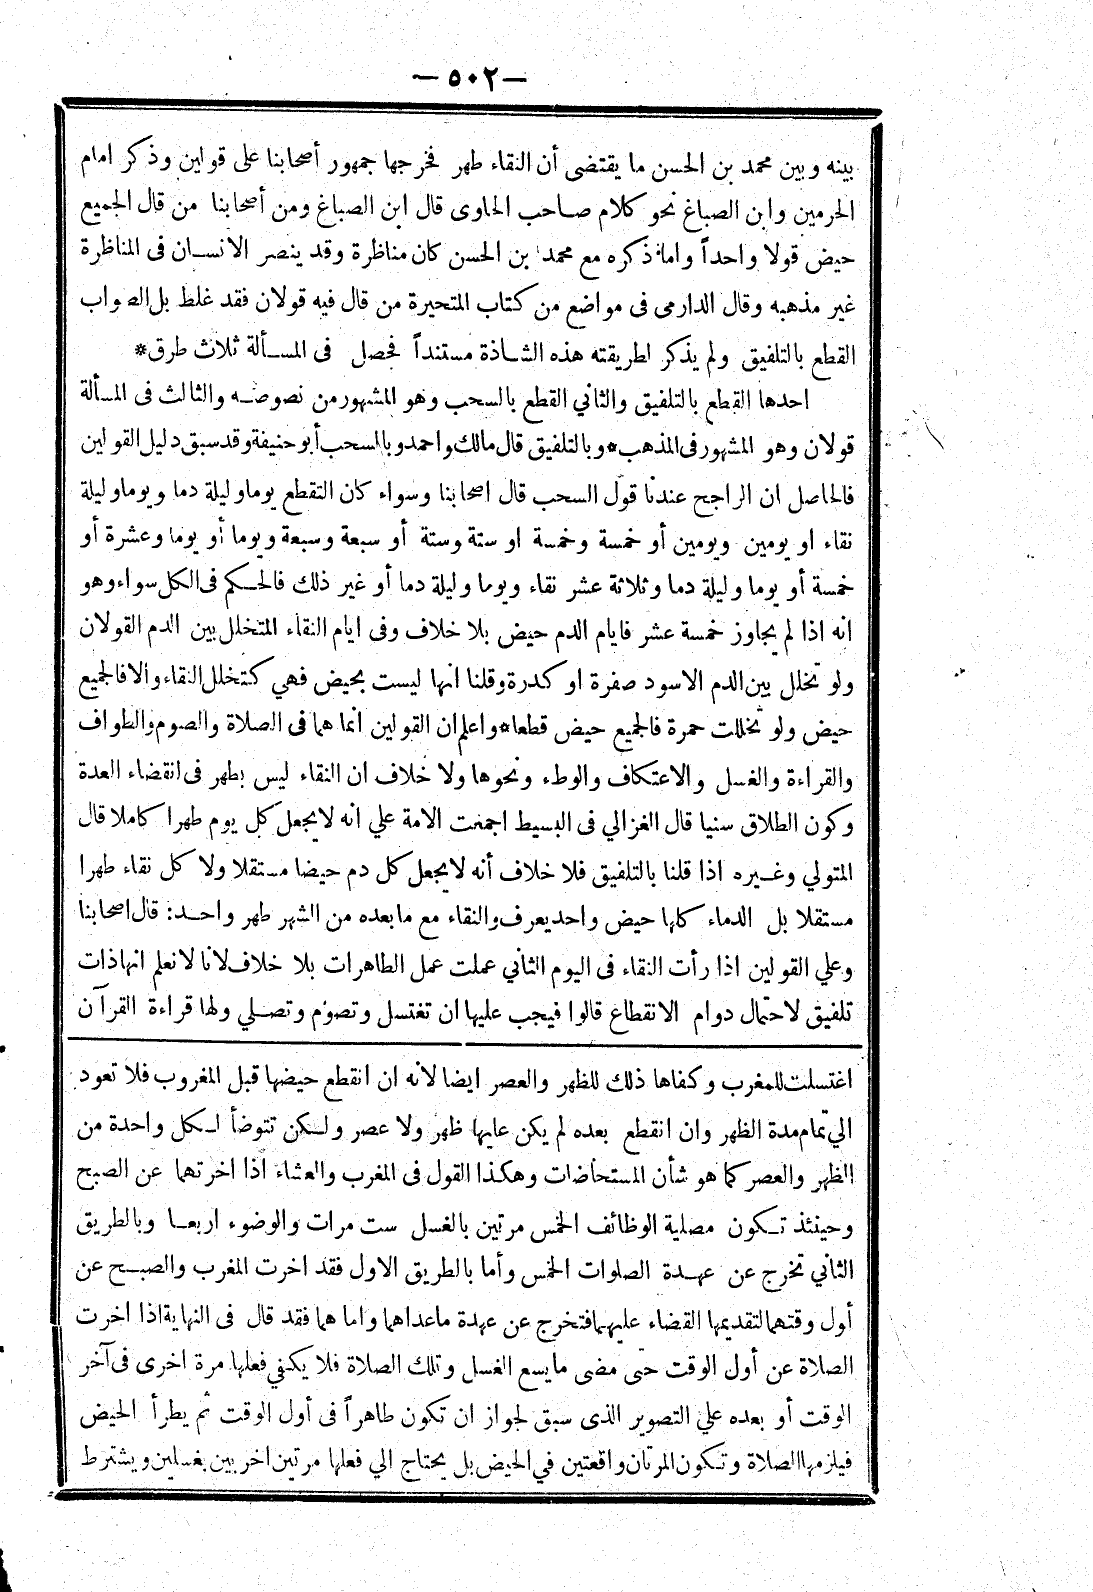 — ٥٠٢ —
بينه وبين محمد بن الحسن ما يقتضى أن النقاء طهر فخرجها جمهور أصحابنا على قولين وذكر امام
الحرمين وابن الصباغ نحو كلام صاحب الحاوى قال ابن الصباغ ومن أصحابنا من قال الجميع
حيض قولا واحداً واما ذكره مع محمد بن الحسن كان مناظرة وقد ينصر الانسان فى المناظرة
غير مذهبه وقال الدارمى فى مواضع من كتاب المتحيرة من قال فيه قولان فقد غلط بل الصواب
القطع بالتلفيق ولم يذكر لطريقته هذه الشاذة مستنداً فحصل فى المسألة ثلاث طرق*
احدها القطع بالتلفيق والثاني القطع بالسحب وهو المشهور من نصوصه والثالث فى المسألة
قولان وهو المشهور فى المذهب* وبالتلفيق قال مالك واحمد وبالسحب أبو حنيفة وقد سبق دليل القولين
فالحاصل ان الراجح عندنا قول السحب قال اصحابنا وسواء كان التقطع يوما وليلة دما ويوما وليلة
نقاء او يومين ويومين أو خمسة وخمسة او ستة وستة أو سبعة وسبعة ويوما أو يوما وعشرة أو
خمسة أو يوما وليلة دما وثلاثة عشر نقاء ويوما وليلة دما أو غير ذلك فالحكم فى الكل سواء وهو
انه اذا لم يجاوز خمسة عشر فايام الدم حيض بلا خلاف وفى ايام النقاء المتخلل بين الدم القولان
ولو تخلل بين الدم الاسود صفرة او كدرة وقلنا انها ليست بحيض فهي كتخلل النقاء والا فالجميع
حيض ولو تخللت حمرة فالجميع حيض قطعا* واعلم ان القولين انما هما فى الصلاة والصوم والطواف
والقراءة والغسل والاعتكاف والوطء ونحوها ولا خلاف ان النقاء ليس بطهر فى انقضاء العدة
وكون الطلاق سنيا قال الغزالي فى البسيط اجمعت الامة علي انه لا يجعل كل يوم طهرا كاملا قال
المتولي وغيره اذا قلنا بالتلفيق فلا خلاف أنه لا يجعل كل دم حيضا مستقلا ولا كل نقاء طهرا
مستقلا بل الدماء كلها حيض واحد يعرف والنقاء مع ما بعده من الشهر طهر واحد: قال اصحابنا
وعلي القولين اذا رأت النقاء فى اليوم الثاني عملت عمل الطاهرات بلا خلاف لانا لا نعلم انها ذات
تلفيق لاحتمال دوام الانقطاع قالوا فيجب عليها ان تغتسل وتصوم وتصلي ولها قراءة القرآن
اغتسلت للمغرب وكفاها ذلك للظهر والعصر ايضا لانه ان انقطع حيضها قبل المغروب فلا تعود
الي تمام مدة الظهر وان انقطع بعده لم يكن عليها ظهر ولا عصر ولكن تتوضأ لكل واحدة من
الظهر والعصر كما هو شأن المستحاضات وهكذا القول فى المغرب والعشاء اذا اخرتهما عن الصبح
وحينئذ تكون مصلية الوظائف الخمس مرتين بالغسل ست مرات والوضوء اربعا وبالطريق
الثاني تخرج عن عهدة الصلوات الخمس وأما بالطريق الاول فقد اخرت المغرب والصبح عن
أول وقتهما لتقديمها القضاء عليهما فتخرج عن عهدة ما عداهما واما هما فقد قال فى النهاية اذا اخرت
الصلاة عن أول الوقت حتى مضى ما يسع الغسل وتلك الصلاة فلا يكفي فعلها مرة اخرى فى آخر
الوقت أو بعده علي التصوير الذى سبق لجواز ان تكون طاهراً فى أول الوقت ثم يطرأ الحيض
فيلزمها الصلاة وتكون المرتان واقعتين في الحيض بل يحتاج الي فعلها مرتين اخريين بغسلين ويشترط